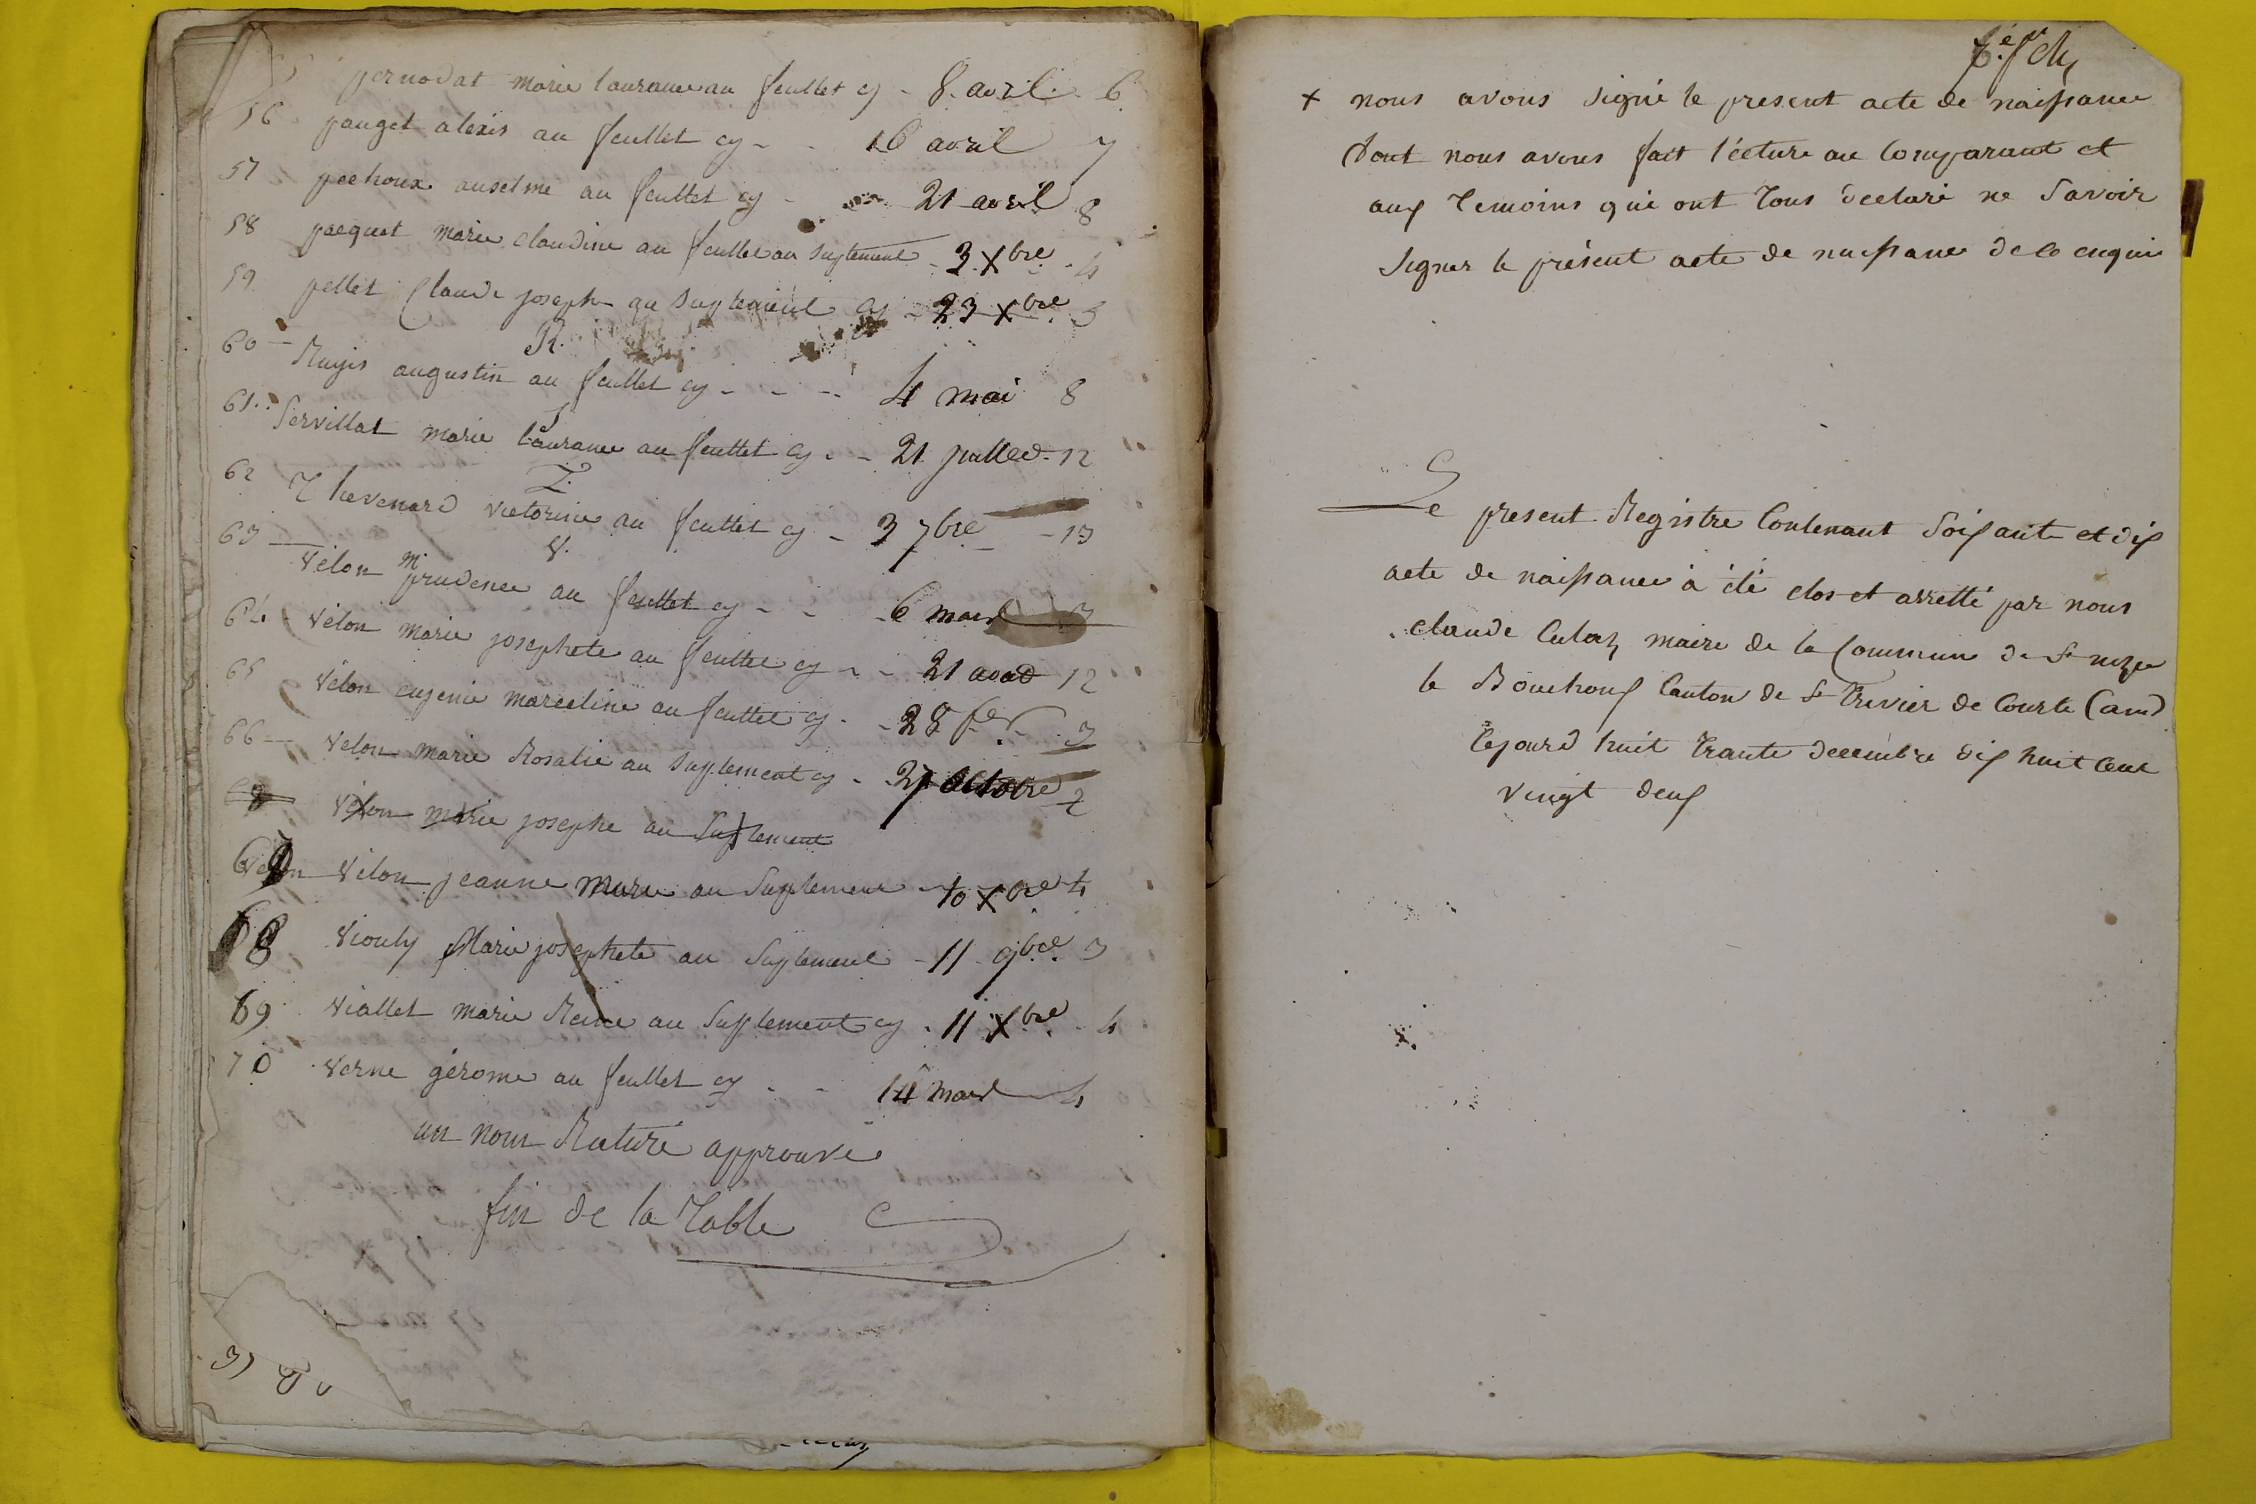 pernodat marie laurance au feullet cy - 8 avril - 6
56 pauget alexis au feullet cy - - 16 avril 7
57 pechoux anselme au feullet cy - 21 avril 8
58 pacquet marie claudine au feullet au suplement - 2 Xbre - 4
59 pellet Claude joseph au suplement cy - 23 Xbre. 5
R.
60 - augustin au feullet cy - - - 4 mai 8
S
61. Servillat marie laurance au feullet cy - - 21 juilled - 12
T.
62 Thevenard victorine au feullet cy - 3 7bre - 13
V.
63 - Vélon m prudence au feullet cy - - 6 mars 3
64 - vélon marie josephete au feullet cy - - 21 aoud 12
65 vélon eugenie marceline au feullet cy - - 28 fer - 3
66 - vélon marie Rosalie au suplement cy - 27 octobre 2
vélon marie josephe au suplement
67 vélon jeanne marie au suplement - 10 Xbre 4
68 viouly Marie josephete au suplement - 11 9bre 3
69 viallet marie Reine au supplement cy - 11 Xbre - 4
70 verne gérome au feullet cy - - 14 mars 4
un nom Raturé approuvé
fin de la Table
+ nous avons signé le present acte de naissance
Dont nous avons fait l'ecture au Comparant et
aux Temoins qui ont Tous declaré ne Savoir
Signer le présent acte de naissance de ce enquis
Le present Registre Contenant Soixante et dix
acte de naissance à été clos et arretté par nous
claude Culaz maire de la Commun de St nizier
le Bouchoux Canton de St Trivier de Courte (ain)
Cejourd huit Trante decembre dix huit Cent
vingt deux